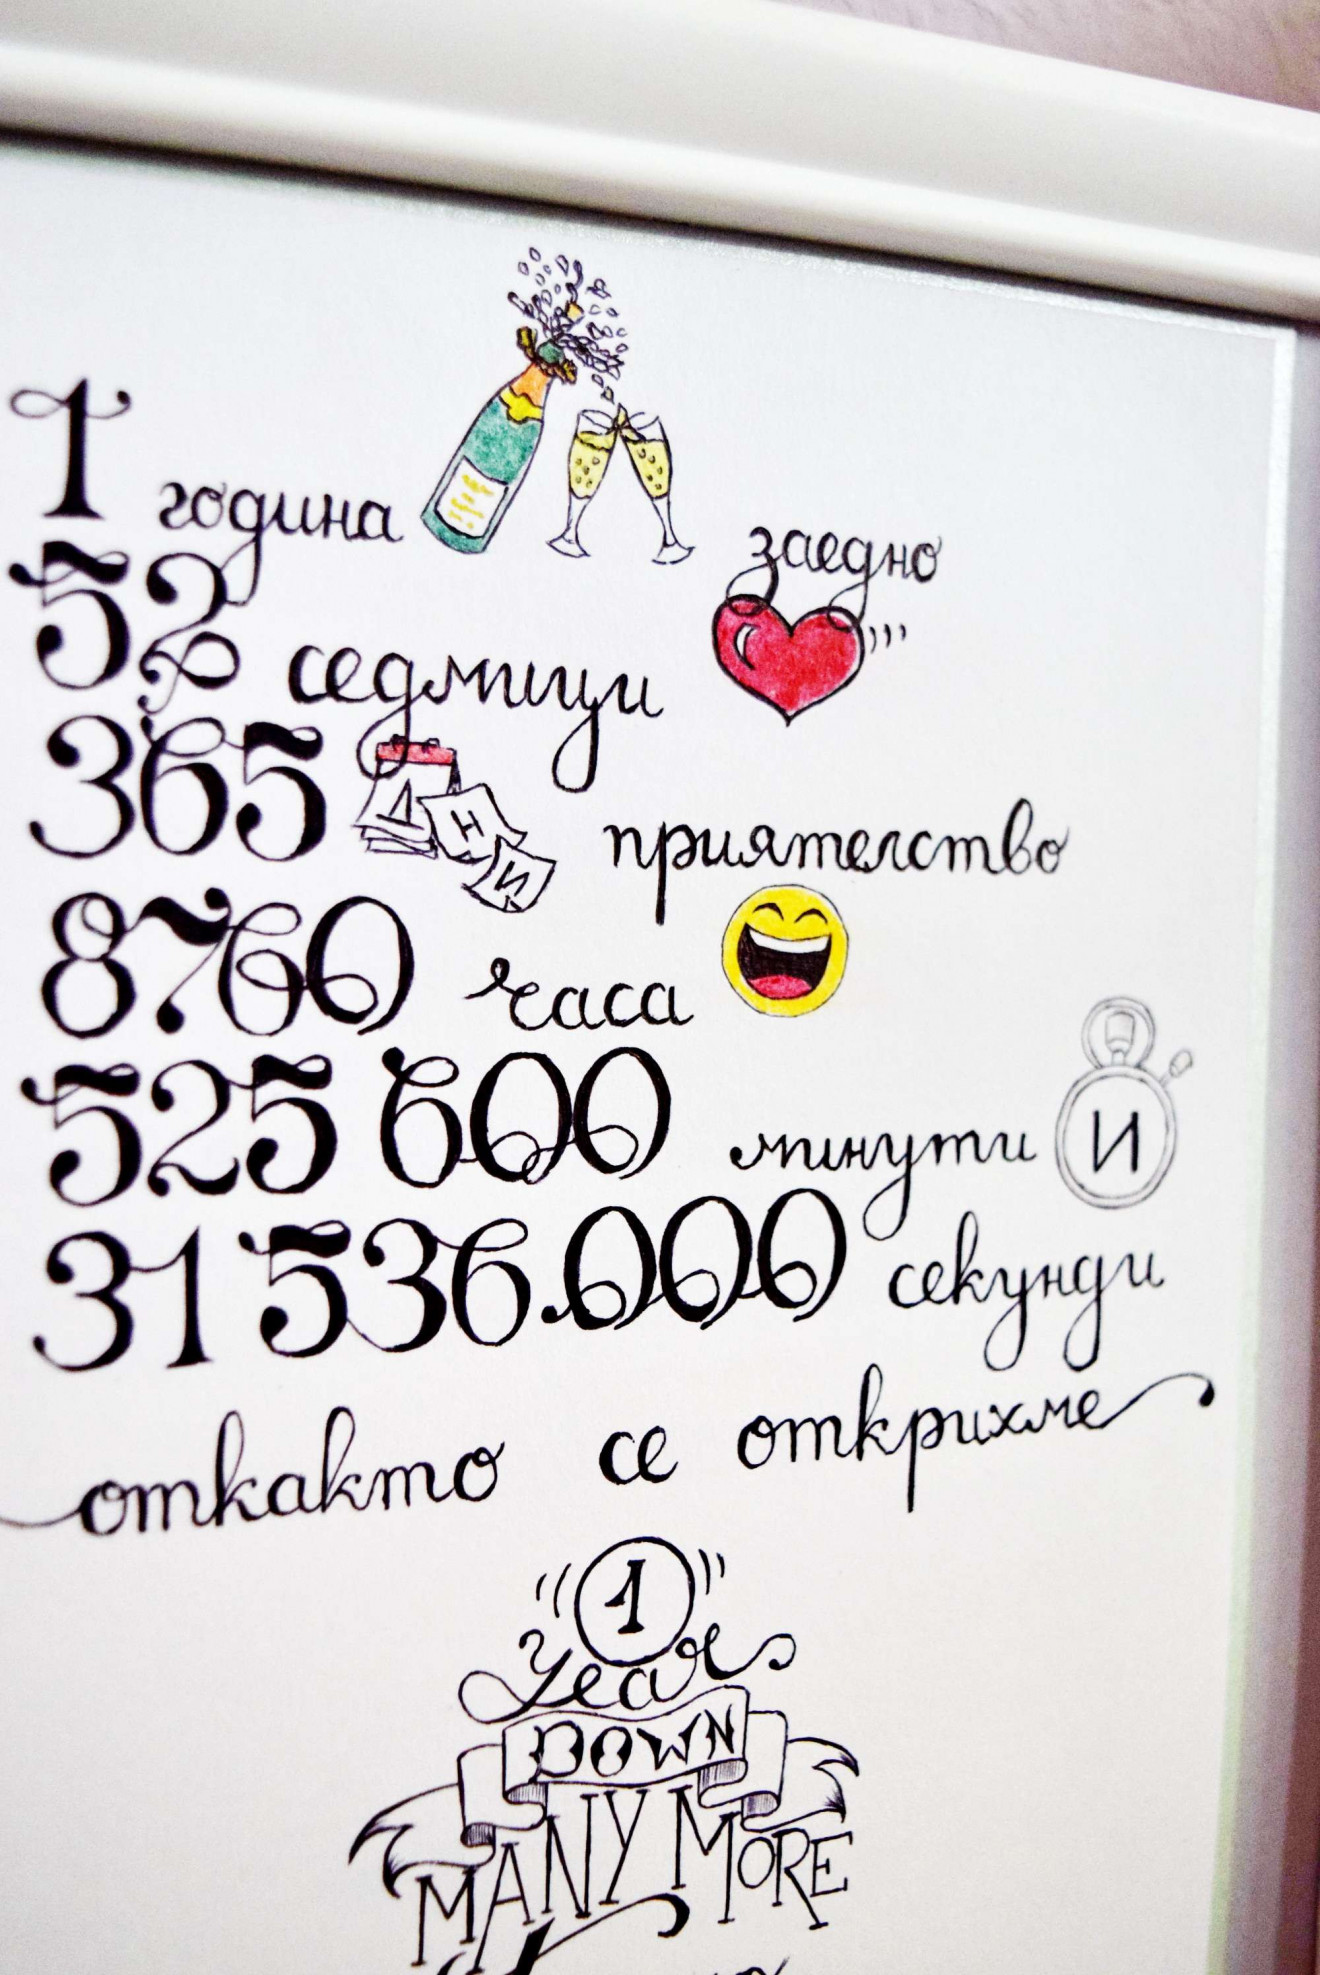 1 година заедно
52 седмици
365 дни приятелство
8760 часа
525 600 минути и
31 536.000 секунди
откакто се открихме
1
Year
DOWN
MANY MORE